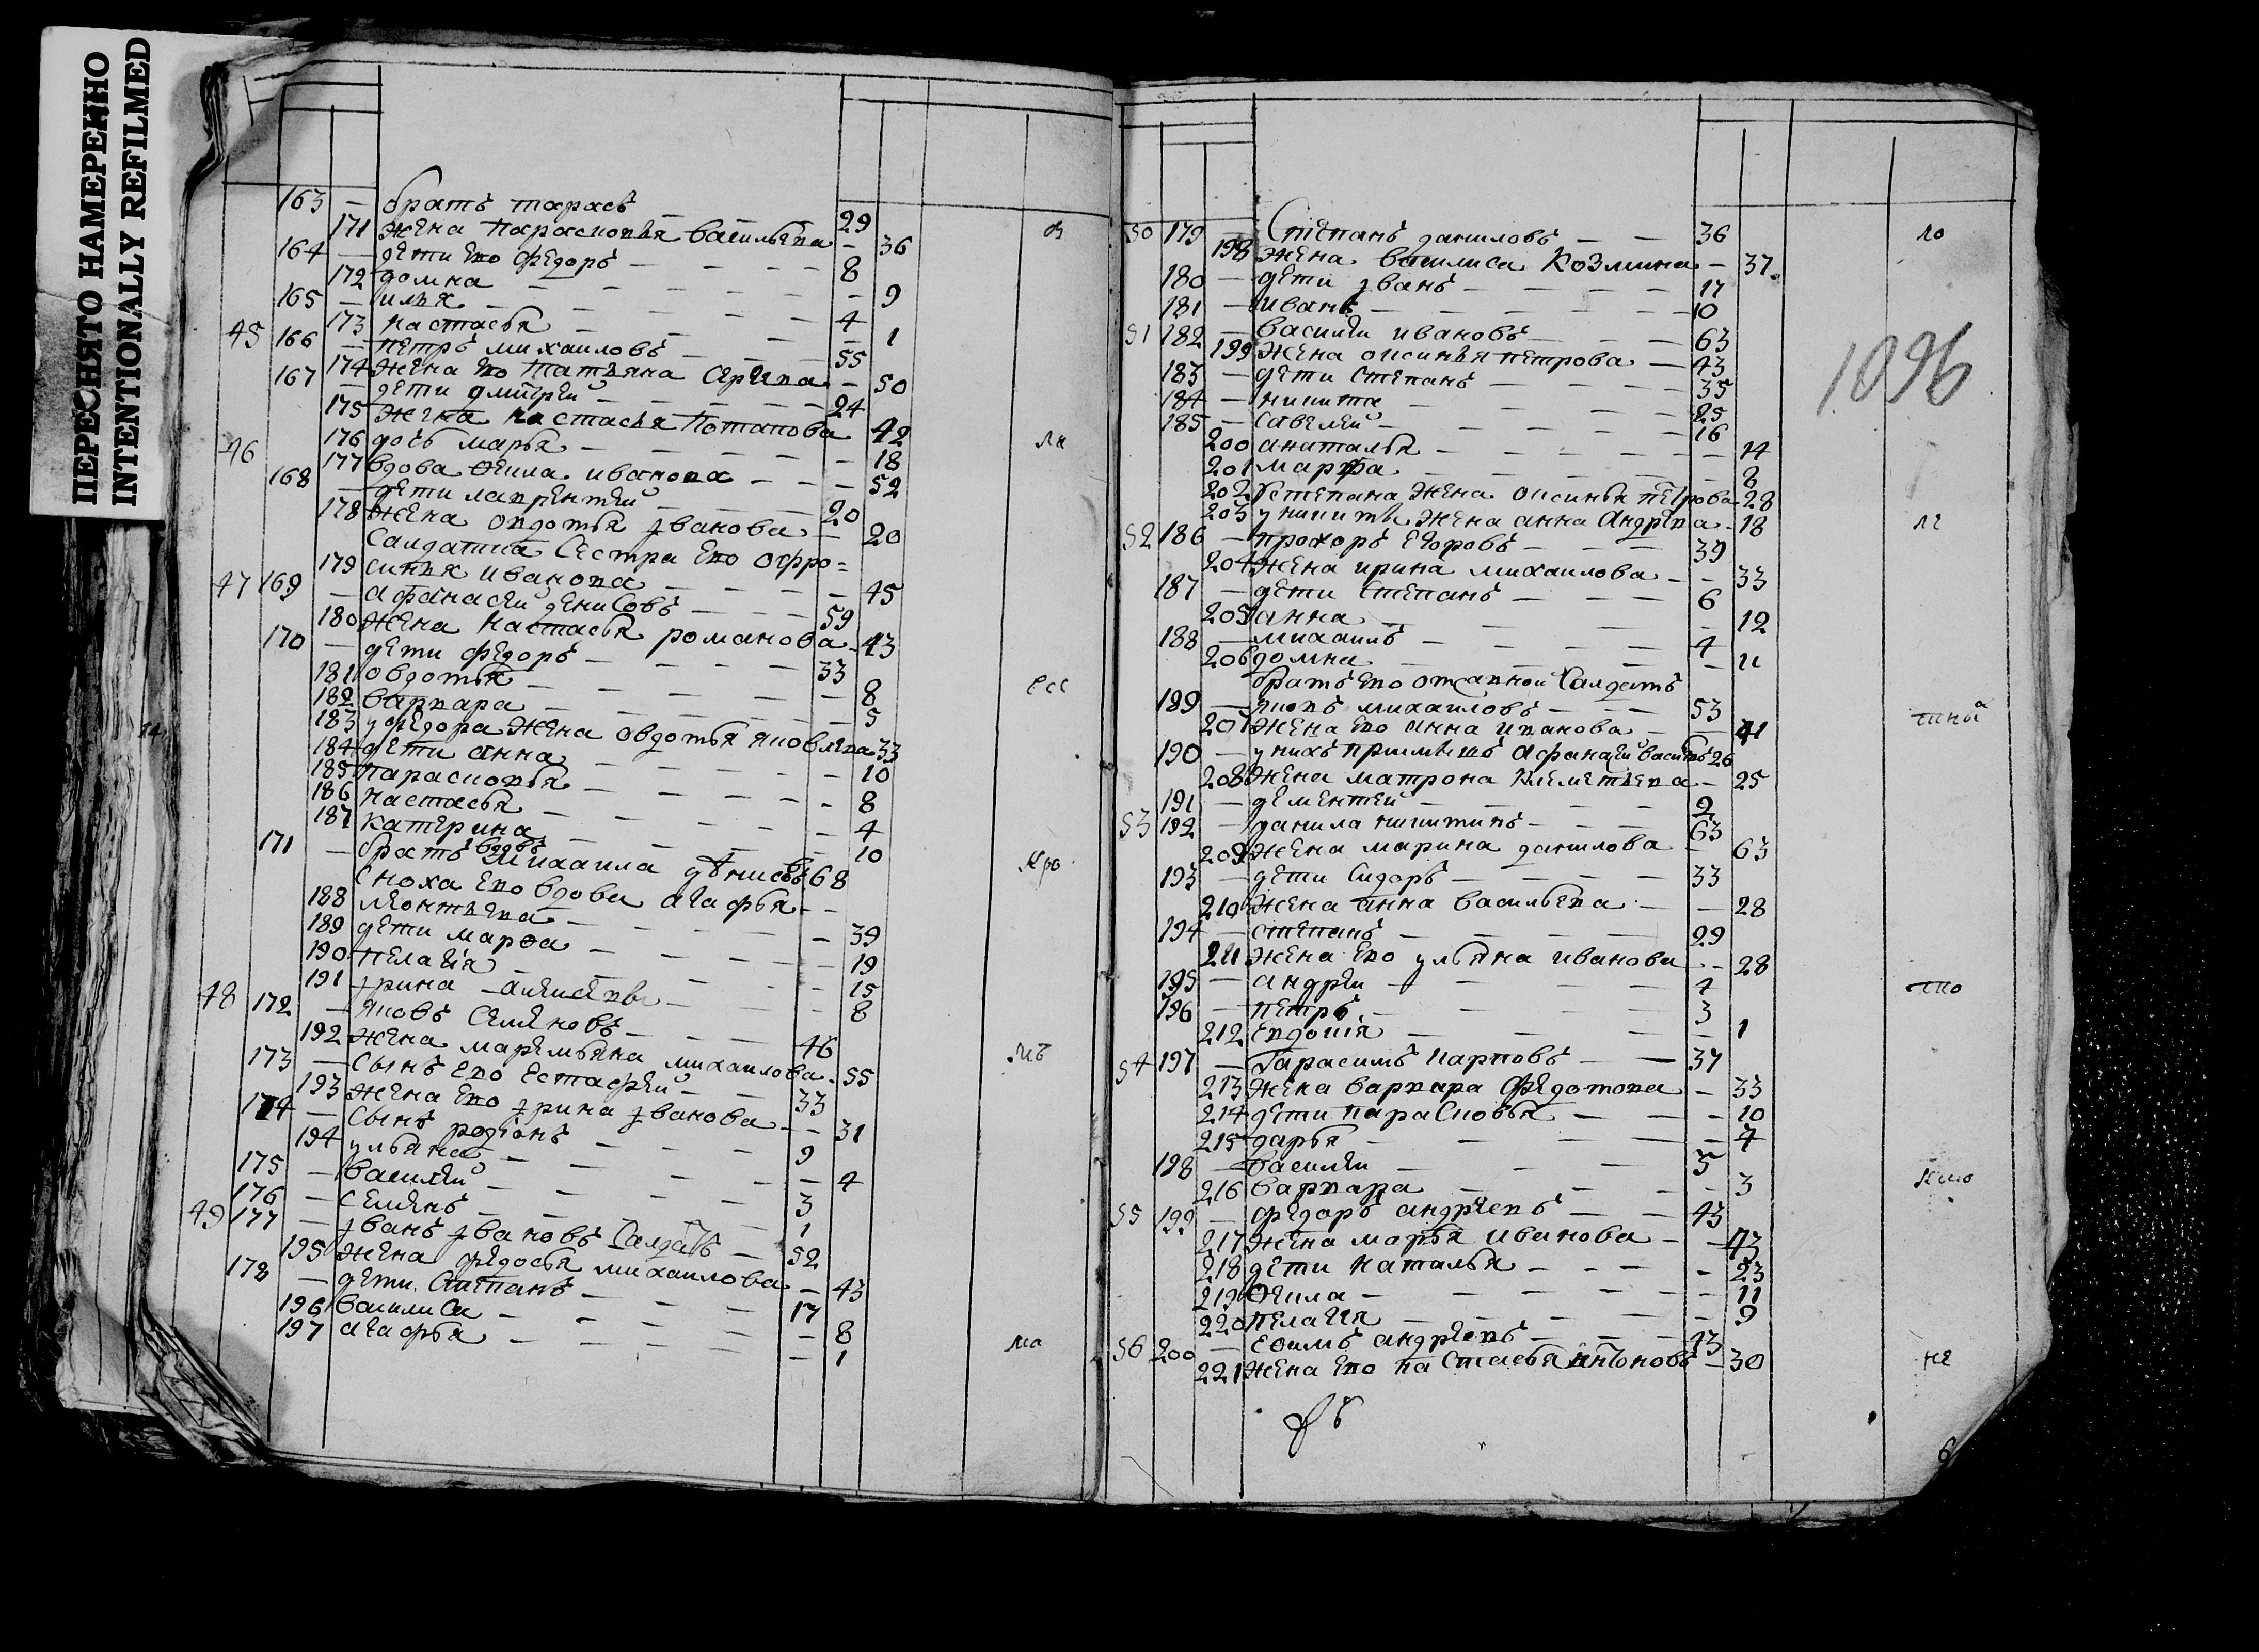 ПЕРЕСНЯТО НАМЕРЕННО
INTENTIONALLY REFILMED
163 — братъ тарасъ — 29
171 жена парасковья васильева — 36
164 — дети ево федоръ — 8
172 домна — 9
165 — илья — 4
173 настасья — 1
45 166 — петръ михаиловъ — 55
174 жена ево татьяна — 50
167 — дети дмитрей — 24
175 жена настасья потапова 42
176 дочь марья — 18
46 177 вдова оекла иванова — 52
168 — дети лаврентей — 20
178 жена овдотья иванова — 20
салдатка сестра ево офро=
179 синья иванова — 45
47 169 — афанасеи денисовъ — 59
180 жена настасья романова — 43
170 — дети федоръ — 33
181 овдотья — 8
182 варвара — 5
183 у федора жена овдотья яковлева 33
184 дети анна — 10
185 парасковья — 8
186 настасья — 4
187 катерина — 10
171 — братъ вдовъ михаила денисовъ 68
сноха ево вдова агафья —
188 леонтьева — 39
189 дети марѳа — 19
190 пелагія — 15
191 ирина — 8
48 172 — яковъ семеновъ — 46
192 жена маремьяна михаилова — 55
173 — сынъ ево естафей — 33
193 жена ево ирина иванова — 31
174 — сынъ родіонъ — 9
194 ульяна — 4
175 — василей — 3
176 — семенъ — 1
49 177 — иванъ ивановъ салдатъ — 52
195 жена федосья михаилова — 43
178 — дети степанъ — 17
196 василиса — 8
197 агафья — 1
ли
есс
кро
ма
50 179 — Степанъ даниловъ — 36
198 жена василиса козмина — 37
180 — дети иванъ — 17
181 — иванъ — 10
51 182 — василеи ивановъ — 63
199 жена оксинья петрова — 43
183 — дети степанъ — 35
184 — никита — 25
185 — савелей — 16
200 анаталья — 14
201 марфа — 8
202 у степана жена оксинья петрова 28
203 у никиты жена анна андрева — 18
52 186 — прохоръ егоровъ — 39
204 жена ирина михаилова — 33
187 — дети степанъ — 6
205 анна — 12
188 — михаилъ — 4
206 домна — 11
братъ ево отсавной салдатъ
189 — михаиловъ — 53
207 жена ево анна иванова — 41
190 — у нихъ приимышъ афанасей 26
208 жена матрона клеметьева — 25
191 — дементей — 2
53 192 — данила никитинъ — 63
209 жена марина данилова — 63
193 — дети сидоръ — 33
210 жена анна васильева — 28
194 — степанъ — 29
211 жена ево ульяна иванова — 28
195 — андреи — 4
196 — петръ — 3
212 евдокія — 1
54 197 — Гарасимъ карповъ — 37
213 жена варвара федотова — 33
214 дети парасковья — 10
215 дарья — 7
198 — василеи — 5
216 варвара — 3
55 199 — федоръ андреевъ — 43
217 жена марья иванова — 43
218 дети наталья — 23
219 оекла — 11
220 пелагия — 9
56 200 — ефимъ андреевъ — 43
221 жена ево настасья антонова — 30
1096
ло
ле
тны
не
6